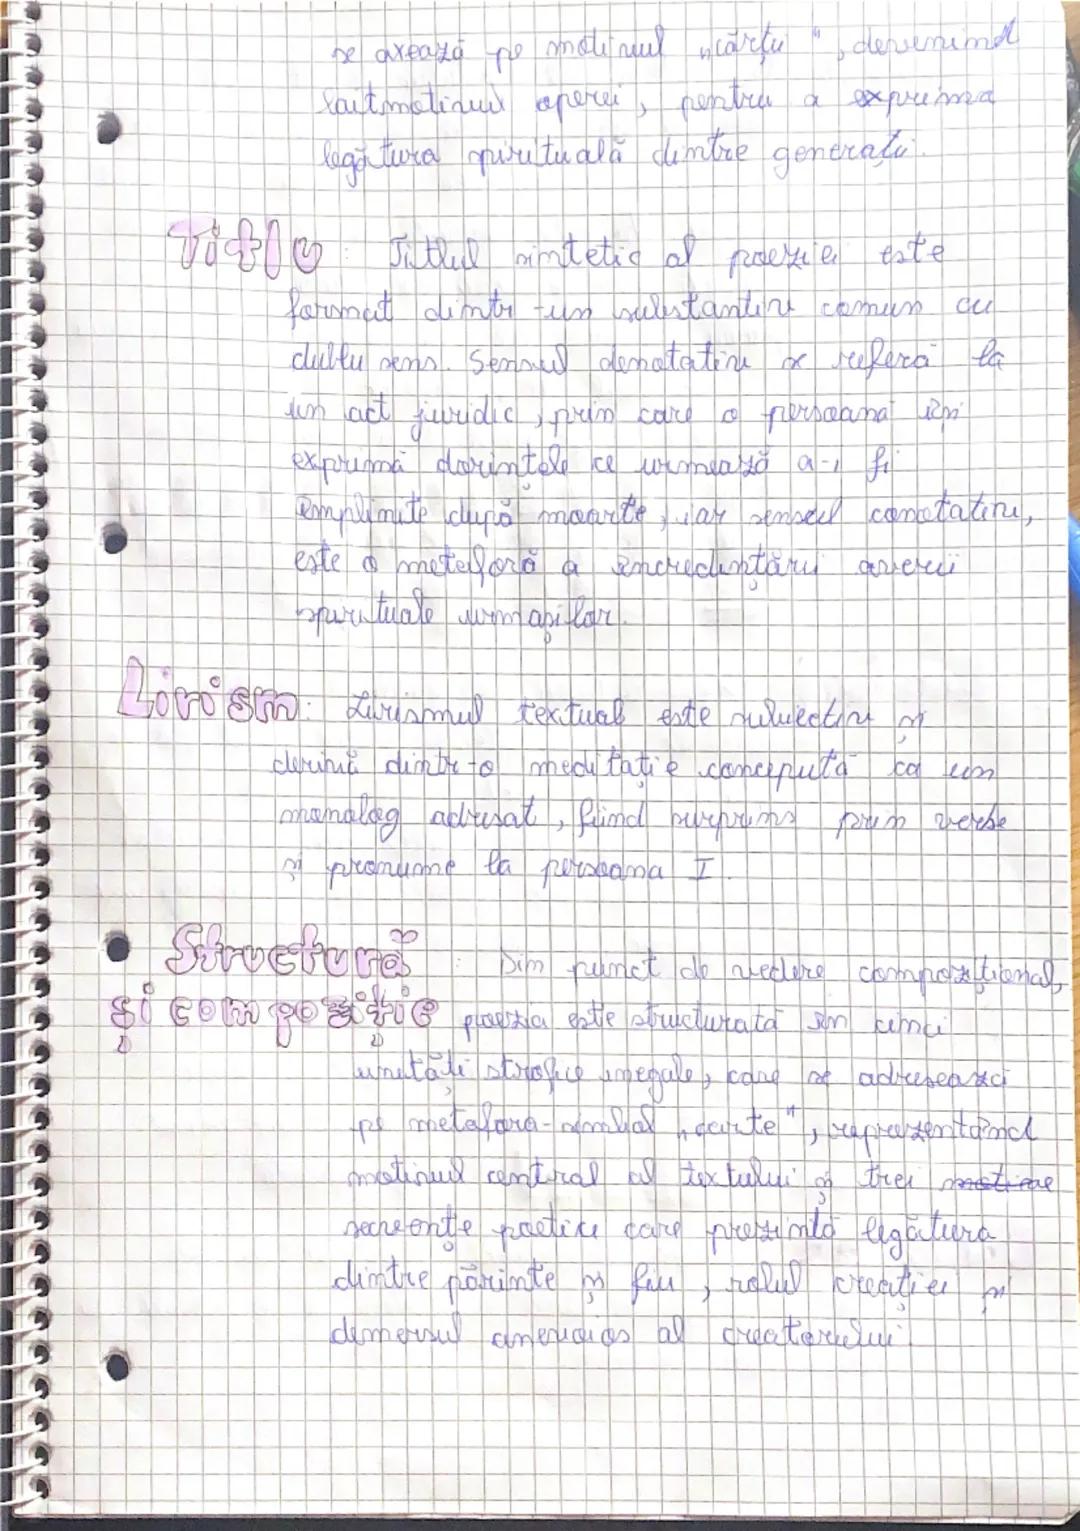 se axează pe motivul „cărții", devenind
laitmotivul operei, pentru a exprima
legătura spirituală dintre generații.
Titlu: Titlul sintetic al poeziei este
format dintr-un substantiv comun cu
dublu sens. Sensul denotativ se referă la
un act juridic, prin care o persoană își
exprimă dorințele ce urmează a-i fi
împlinite după moarte, iar sensul conotativ,
este o metaforă a încredințării averii
spirituale urmașilor.
Lirism: Lirismul textual este subiectiv și
derivă dintr-o meditație concepută ca un
monolog adresat, fiind surprins prin verbe
și pronume la persoana I.
Structură : Din punct de vedere compozițional,
și compoziție poezia este structurată în cinci
unități strofice inegale, care se adresează
pe metafora-simbol „carte", reprezentând
motivul central al textului și trei motive
secvențe poetice care prezintă legătura
dintre părinte și fiu, rolul creației și
demersul anevoios al creatorului.